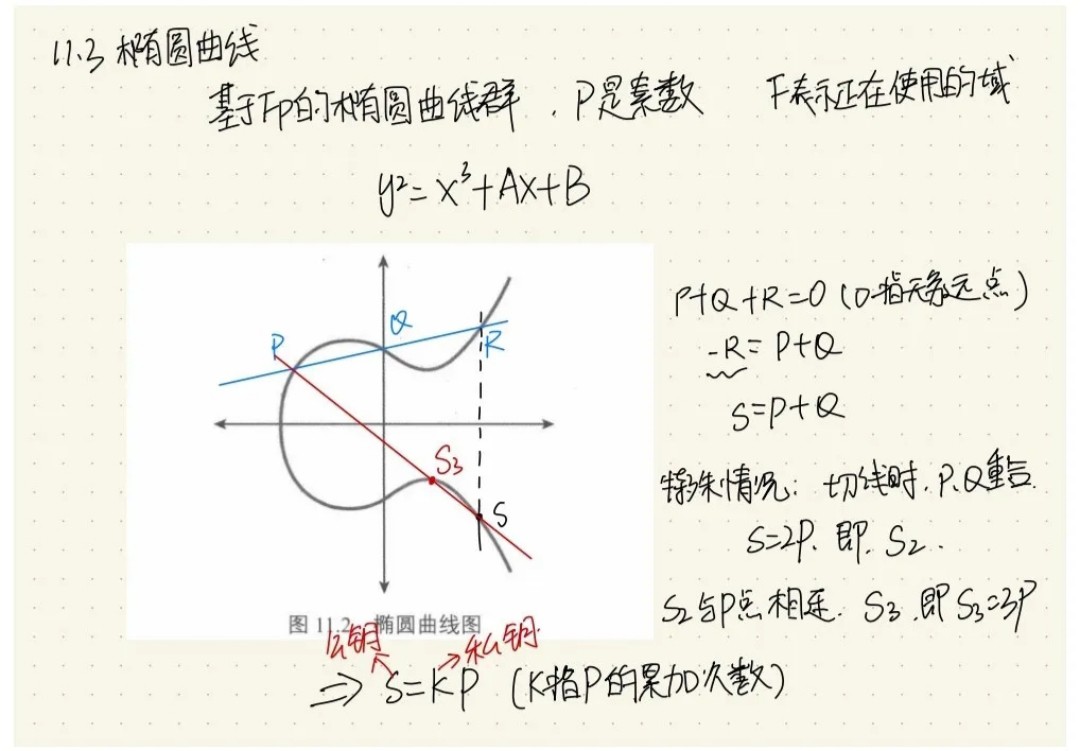 11.3 椭圆曲线
基于Fp的椭圆曲线群，P是素数 F表示正在使用的域
y²=x³+Ax+B
P+Q+R=0（0指无穷远点）
-R=P+Q
S=P+Q
特殊情况：切线时，P、Q重合
S=2P，即，S₂.
S₂与P点相连. S₃，即S₃=3P
P
Q
R
S₃
S
图 11.2 椭圆曲线图
公钥 私钥
⇒ S=KP (K指P的累加次数)